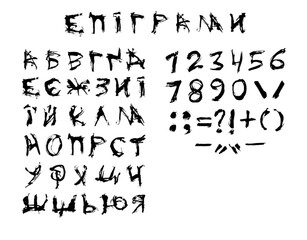 ЕПІГРАМИ
АБВГҐД
ЕЄЖЗИЇ
ЙКЛМ
НОПРСТ
УФХЦЧ
ШЩЬЮЯ
123456
7890\/
:;=?!+()